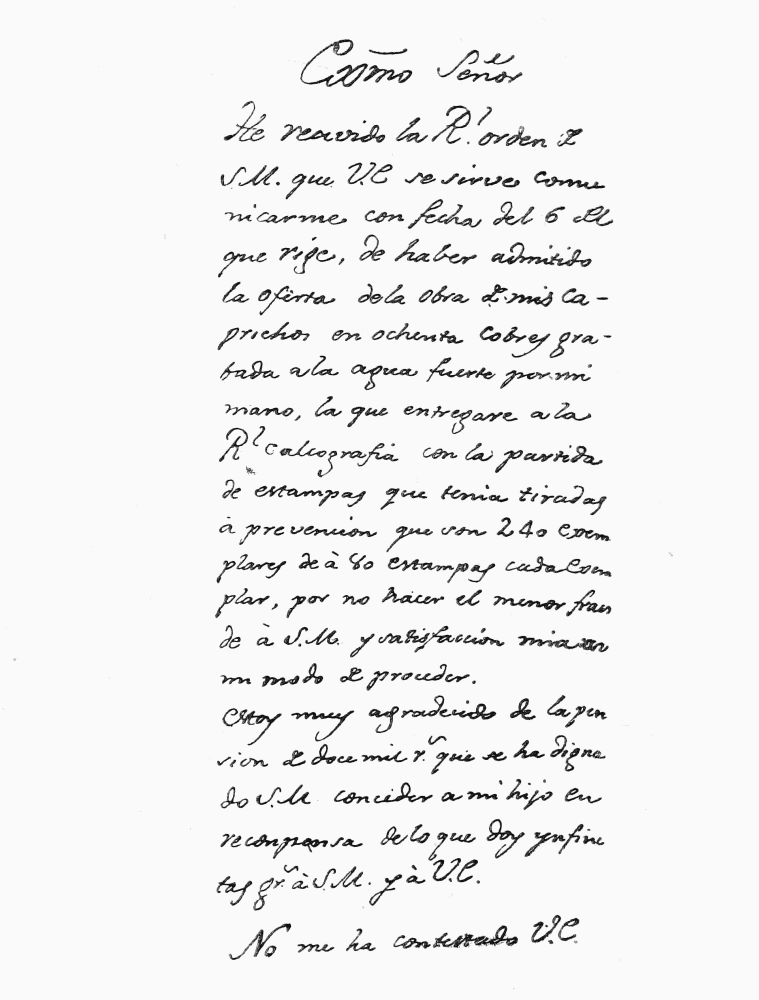 Exmo Señor
He recivido la Rl. orden de
S.M. que V.E. se sirve comu
nicarme con fecha del 6 del
que rige, de haber admitido
la oferta dela obra de mis Ca-
prichos en ochenta cobres gra-
bada a la agua fuerte por mi
mano, la que entregare a la
Rl calcografia con la partida
de estampas que tenia tiradas
à prevencion que son 240 exem
plares de à 80 estampas cada exem
plar, por no hacer el menor frau
de à S.M. y satisfaccion mia en
mi modo de proceder.
estoy muy agradecido de la pen
sion de doce mil rs. que se ha digna
do S.M. conceder a mi hijo en
reconpensa de lo que doy ynfini
tas grs. à S.M. y à V.E.
No me ha contestado V.E.